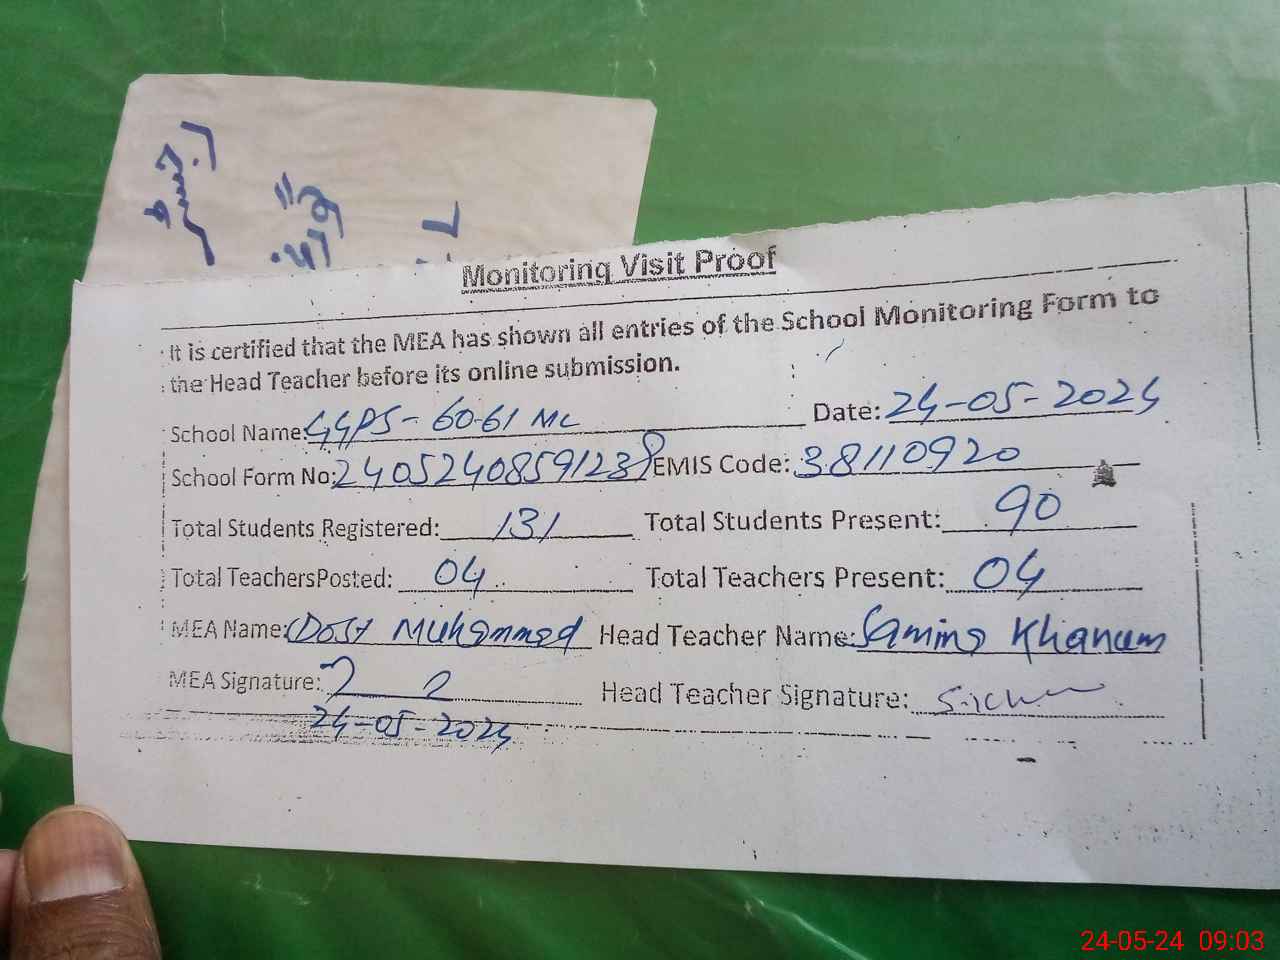 Monitoring Visit Proof
It is certified that the MEA has shown all entries of the School Monitoring Form to
the Head Teacher before its online submission.
School Name: GGPS - 60-61 ML Date: 24-05-2024
School Form No: 24052408591238 EMIS Code: 38110920
Total Students Registered: 131 Total Students Present: 90
Total TeachersPosted: 04 Total Teachers Present: 04
MEA Name: Dost Muhammad Head Teacher Name: Samina Khanum
MEA Signature: Head Teacher Signature:
24-05-2024
24-05-24 09:03